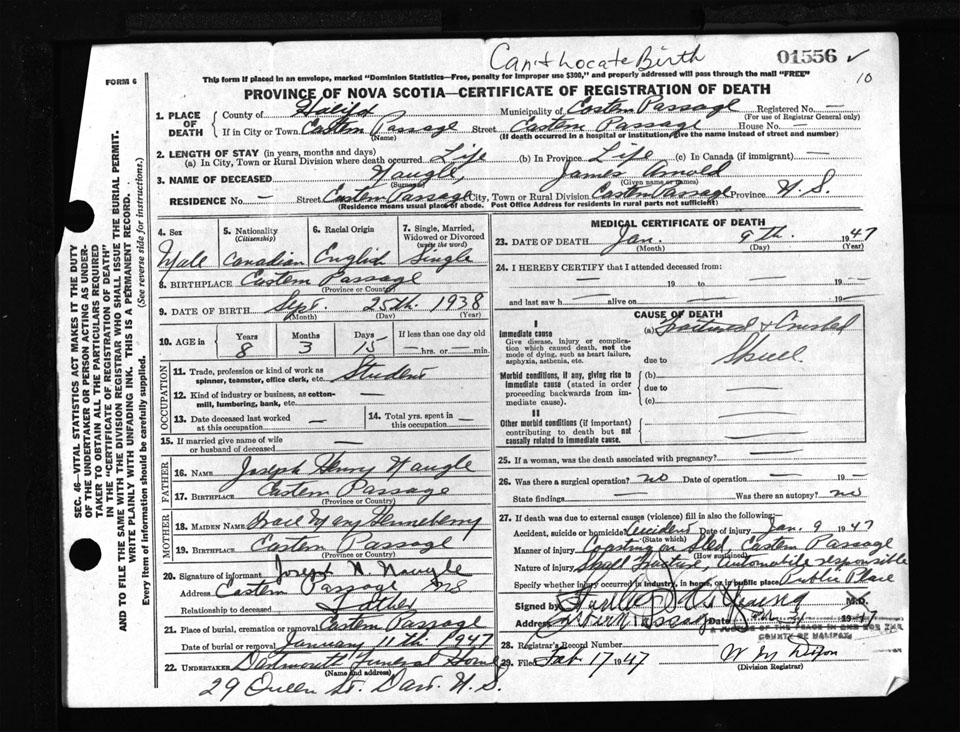 Can't Locate Birth
01556 ✓
10
FORM 6
This form if placed in an envelope, marked "Dominion Statistics—Free, penalty for improper use $300," and properly addressed will pass through the mail "FREE"
PROVINCE OF NOVA SCOTIA—CERTIFICATE OF REGISTRATION OF DEATH
SEC. 46—VITAL STATISTICS ACT MAKES IT THE DUTY
OF THE UNDERTAKER OR PERSON ACTING AS UNDER-
TAKER TO OBTAIN ALL THE PARTICULARS REQUIRED
IN THE "CERTIFICATE OF REGISTRATION OF DEATH"
AND TO FILE THE SAME WITH THE DIVISION REGISTRAR WHO SHALL ISSUE THE BURIAL PERMIT.
WRITE PLAINLY WITH UNFADING INK. THIS IS A PERMANENT RECORD.
Every item of information should be carefully supplied. (See reverse side for instructions.)
1. PLACE OF DEATH
County of Halifax Municipality of Eastern Passage Registered No. —
(For use of Registrar General only)
If in City or Town Eastern Passage Street Eastern Passage House No. —
(Name) (If death occurred in a hospital or institution, give the name instead of street and number)
2. LENGTH OF STAY (in years, months and days)
(a) In City, Town or Rural Division where death occurred Life (b) In Province Life (c) In Canada (if immigrant) —
3. NAME OF DECEASED Naugle, James Arnold
(Surname) (Given name or names)
RESIDENCE No. — Street Eastern Passage City, Town or Rural Division Eastern Passage Province N.S.
(Residence means usual place of abode. Post Office Address for residents in rural parts not sufficient)
4. Sex
Male
5. Nationality
(Citizenship)
Canadian
6. Racial Origin
English
7. Single, Married,
Widowed or Divorced
(write the word)
Single
8. BIRTHPLACE Eastern Passage
(Province or Country)
9. DATE OF BIRTH Sept. 25th. 1938
(Month) (Day) (Year)
10. AGE in
Years Months Days If less than one day old
8 3 15 — hrs. or — min.
OCCUPATION
11. Trade, profession or kind of work as
spinner, teamster, office clerk, etc. Student
12. Kind of industry or business, as cotton-
mill, lumbering, bank, etc. —
13. Date deceased last worked
at this occupation —
14. Total yrs. spent in
this occupation —
15. If married give name of wife
or husband of deceased —
FATHER
16. NAME Joseph Henry Naugle
17. BIRTHPLACE Eastern Passage
(Province or Country)
MOTHER
18. MAIDEN NAME Grace Mary Henneberry
19. BIRTHPLACE Eastern Passage
(Province or Country)
20. Signature of informant Joseph H. Naugle
Address Eastern Passage NS
Relationship to deceased Father
21. Place of burial, cremation or removal Eastern Passage
Date of burial or removal January 11th 1947
22. UNDERTAKER Dartmouth Funeral Home
(Name and address)
29 Queen St. Dart. N.S.
MEDICAL CERTIFICATE OF DEATH
23. DATE OF DEATH Jan. 9th. 1947
(Month) (Day) (Year)
24. I HEREBY CERTIFY that I attended deceased from:
— 19 — to — 19 —
and last saw h — alive on — 19 —
CAUSE OF DEATH
I
Immediate cause
Give disease, injury or complica-
tion which caused death, not the
mode of dying, such as heart failure,
asphyxia, asthenia, etc.
(a) Fractured & Crushed
Skull
due to
Morbid conditions, if any, giving rise to
immediate cause (stated in order
proceeding backwards from im-
mediate cause).
(b) —
due to —
(c) —
II
Other morbid conditions (if important)
contributing to death but not
causally related to immediate cause.
25. If a woman, was the death associated with pregnancy? —
26. Was there a surgical operation? no Date of operation — 19 —
State findings — Was there an autopsy? no
27. If death was due to external causes (violence) fill in also the following:
Accident, suicide or homicide? Accident Date of injury Jan. 9 1947
(State which)
Manner of injury Coasting on Sled, Eastern Passage
(How sustained)
Nature of injury Skull Fracture, Automobile responsible
Specify whether injury occurred in industry, in home, or in public place Public Place
Signed by M.D.
Address Date 1947
A JUSTICE OF THE PEACE IN AND FOR THE
COUNTY OF HALIFAX
28. Registrar's Record Number
29. Filed Feb 17 1947
(Division Registrar)